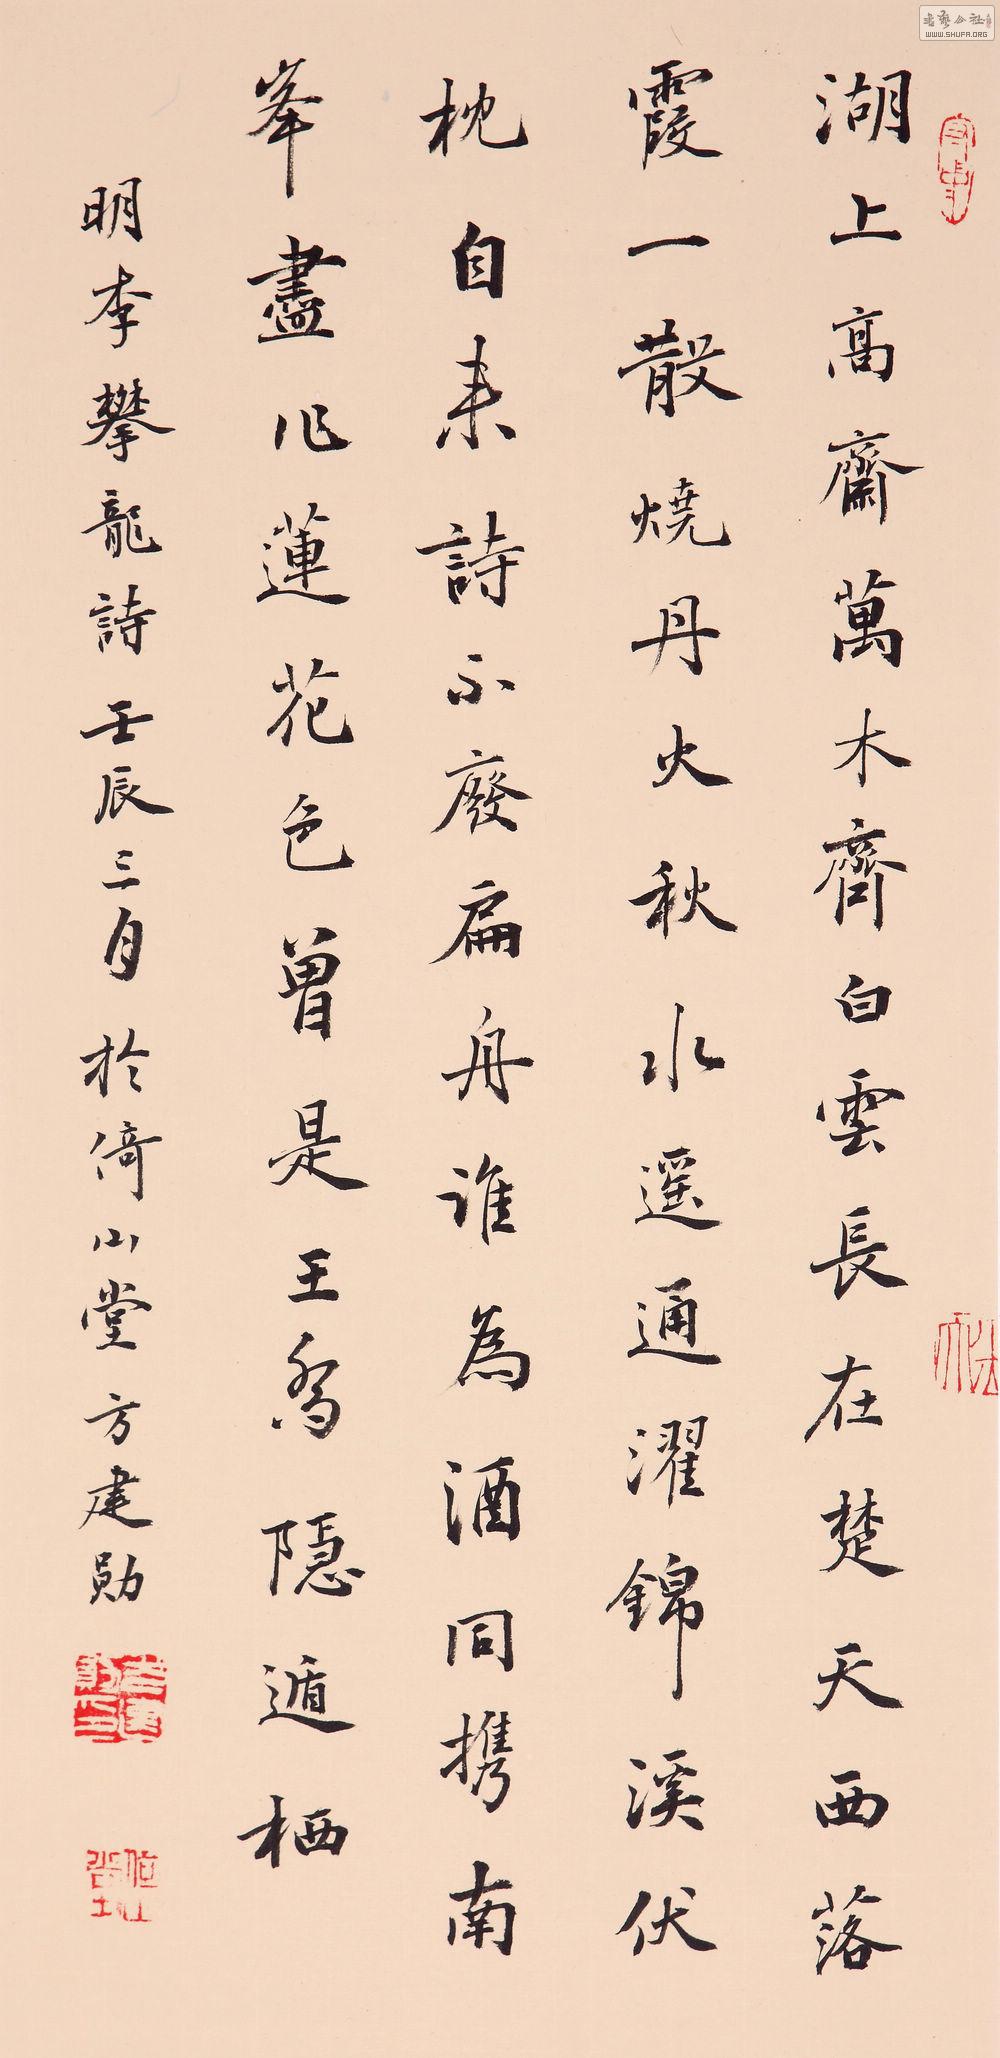 湖上高齋萬木齊白雲長在楚天西落
霞一散燒丹火秋水遥通濯錦溪伏
枕自来詩不廢扁舟誰為酒同携南
峯盡作蓮花色曾是王喬隱遁栖
明李攀龍詩壬辰三月於倚山堂方建勛
WWW.SHUFA.ORG